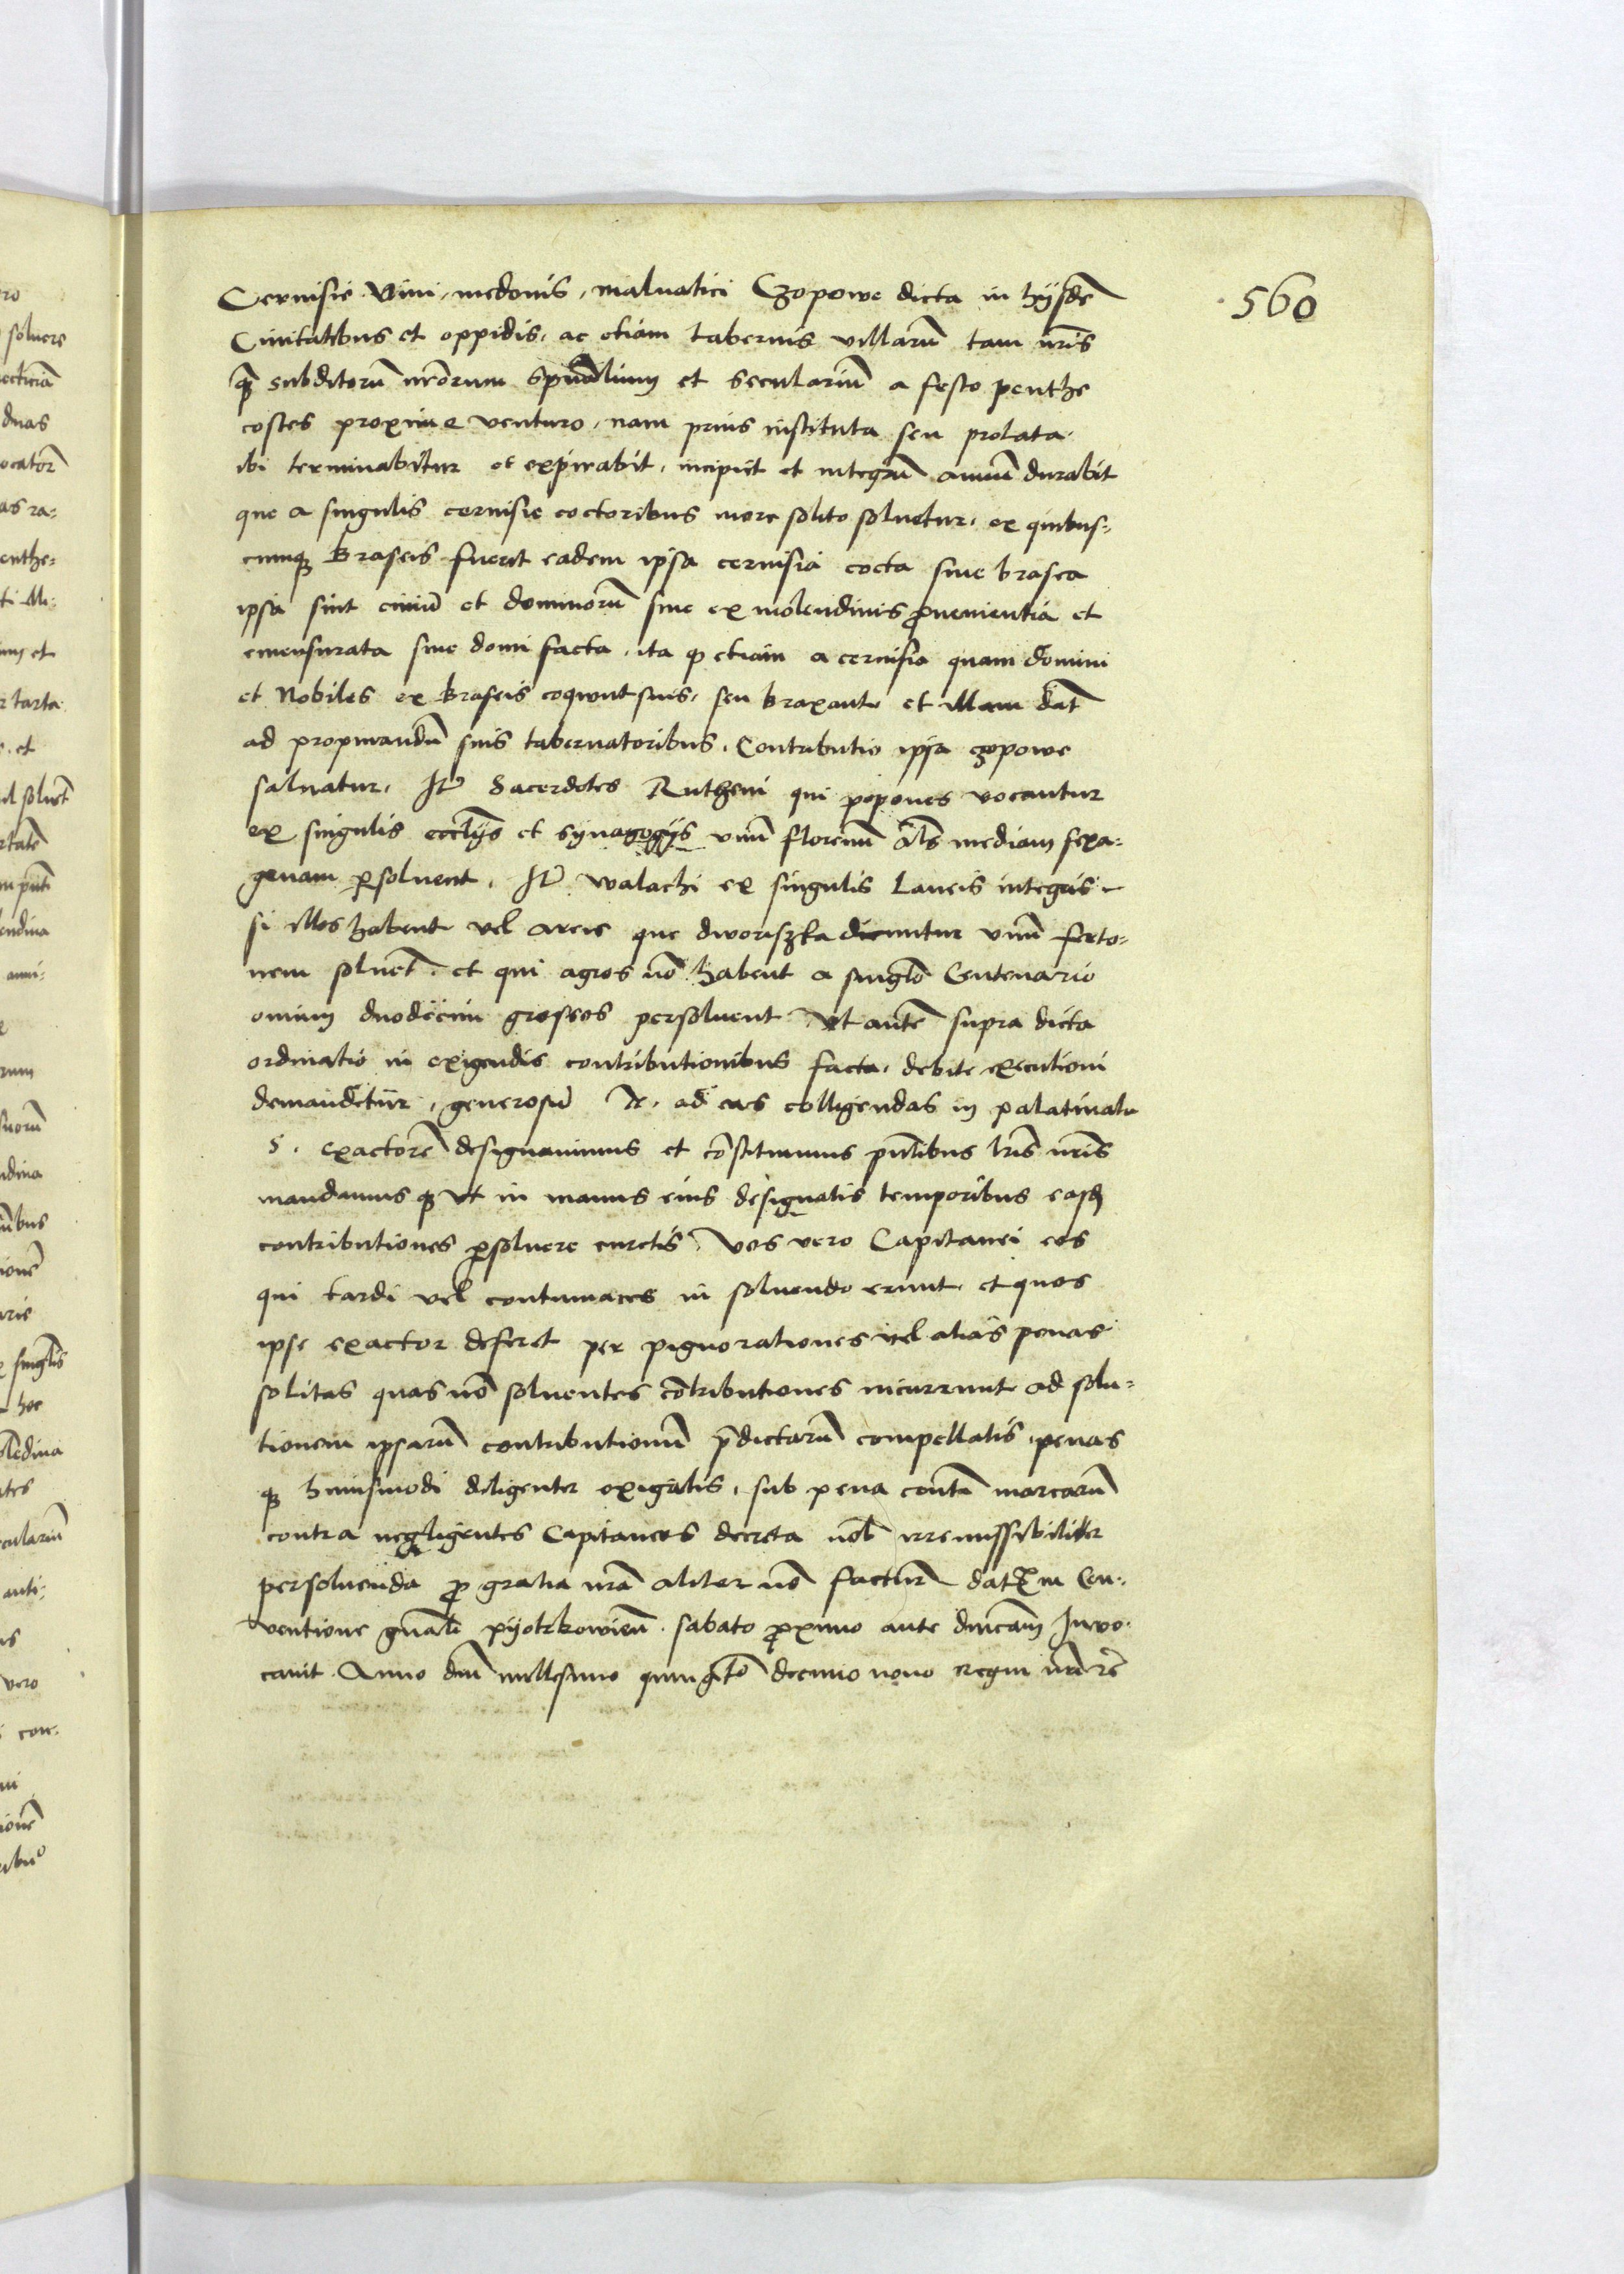 560
Ceruisie Vini, medonis, maluatici Czopowe dicta in hijsdē
Ciuitatibus et oppidis, ac etiam tabernis villarū tam nr̄is
q̄ꝫ subditorū nr̄orum sp̄ualium et seculariū a festo penthe
costes proxime venturo, nam prius instituta seu prolata
ibi terminabitur et expirabit, incipiet et integrū annū durabit
que a singulis ceruisie coctoribus more solito soluetur, ex quibus=
cumqꝫ braseis fuerit eadem ipsa ceruisia cocta siue brasea
ipsa sint ciuiū et dominorū siue ex molendinis ꝓuenientia et
emensurata siue domi facta, ita ꝙ etiam a ceruisia quam domini
et Nobiles ex braseis coquunt suis, seu braxant et illam dāt
ad propinandū suis tabernatoribus, Contributio ipsa czopowe
saluatur, Itē Sacerdotes Rutheni qui popones vocantur
ex singulis eccl̄ijs et synagogijs vnū florenū al̄s mediam sexa=
genam ꝑsoluent, Itē walachi ex singulis laneis integris
si illos habent vel areis que dworiszka dicuntur vnū ferto=
nem soluēt, et qui agros nō habent a singl̄o Centenario
ouium duodecim grossos persoluent Vt autē supra dicta
ordinatio in exigendis contributionibus facta, debite executioni
demandetur, generosū N. ad eas colligendas in palatinatu
S. exactorē designauimus et cōstituimus pn̄tibus lr̄is nr̄is
mandamusqꝫ vt in manus eius designatis temporibus easdē
contributiones ꝑsoluere curetis, Vos vero Capitanei eos
qui tardi vel contumaces in soluendo erunt, et quos
ipse exactor deferet per pignorationes vel alias penas
solitas quas nō soluentes cōtributiones incurrunt ad solu=
tionem ipsarū contributionū p̄dictarū compellatis, penas
qꝫ huiusmodi diligenter exigatis, sub pena centū marcarū
contra negligentes Capitaneos decreta nob̄ irremissibiliter
persoluenda ꝓ gratia nr̄a aliter nō facturi dat̄ in Con=
uentione gn̄ali pyotrkowien̄ sabato ꝓximo ante dn̄icam Inuo
cauit Anno dn̄i millesimo quingētō decimo nono regni nr̄i rc̄